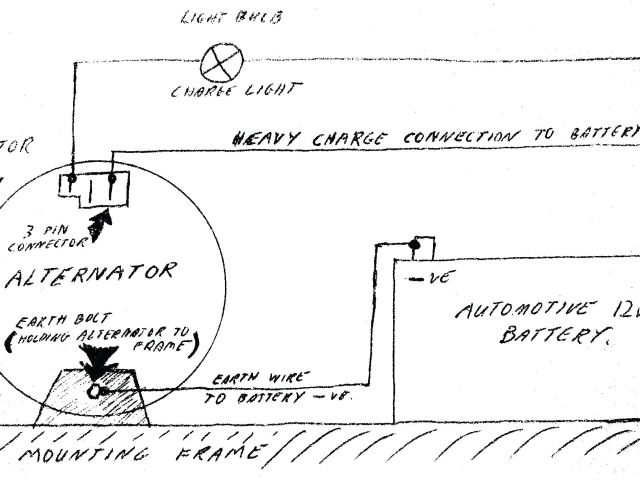 LIGHT BULB
CHARGE LIGHT
TOR
HEAVY CHARGE CONNECTION TO BATTERY
3 PIN
CONNECTOR
ALTERNATOR
- VE
AUTOMOTIVE 12V
BATTERY.
EARTH BOLT
(HOLDING ALTERNATOR TO
FRAME)
EARTH WIRE
TO BATTERY -VE.
MOUNTING FRAME